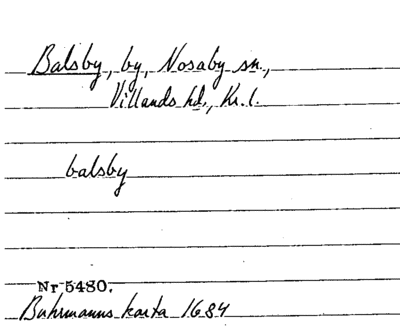 Balsby, by, Nosaby sn.,
Villands hd., Kr. l.
balsby
Nr 5480.
Buhrmanns karta 1684